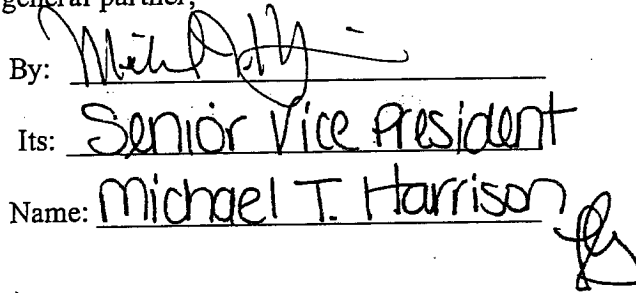 general partner,
By:
Its: Senior Vice President
Name: Michael T. Harrison